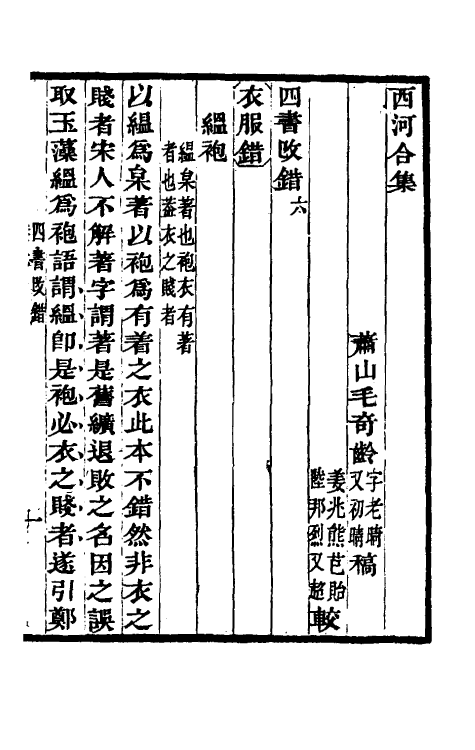 西河合集
蕭山毛奇齡字老晴又初晴稿
姜兆熊芑貽
陸邦烈又超較
四書改錯六
衣服錯
縕袍
縕枲著也袍衣有著
者也蓋衣之賤者
以縕爲枲著以袍爲有着之衣此本不錯然非衣之
賤者宋人不解著字謂著是舊纊退敗之名因之誤
取玉藻縕爲袍語謂縕卽是袍必衣之賤者遂引鄭
四書改錯